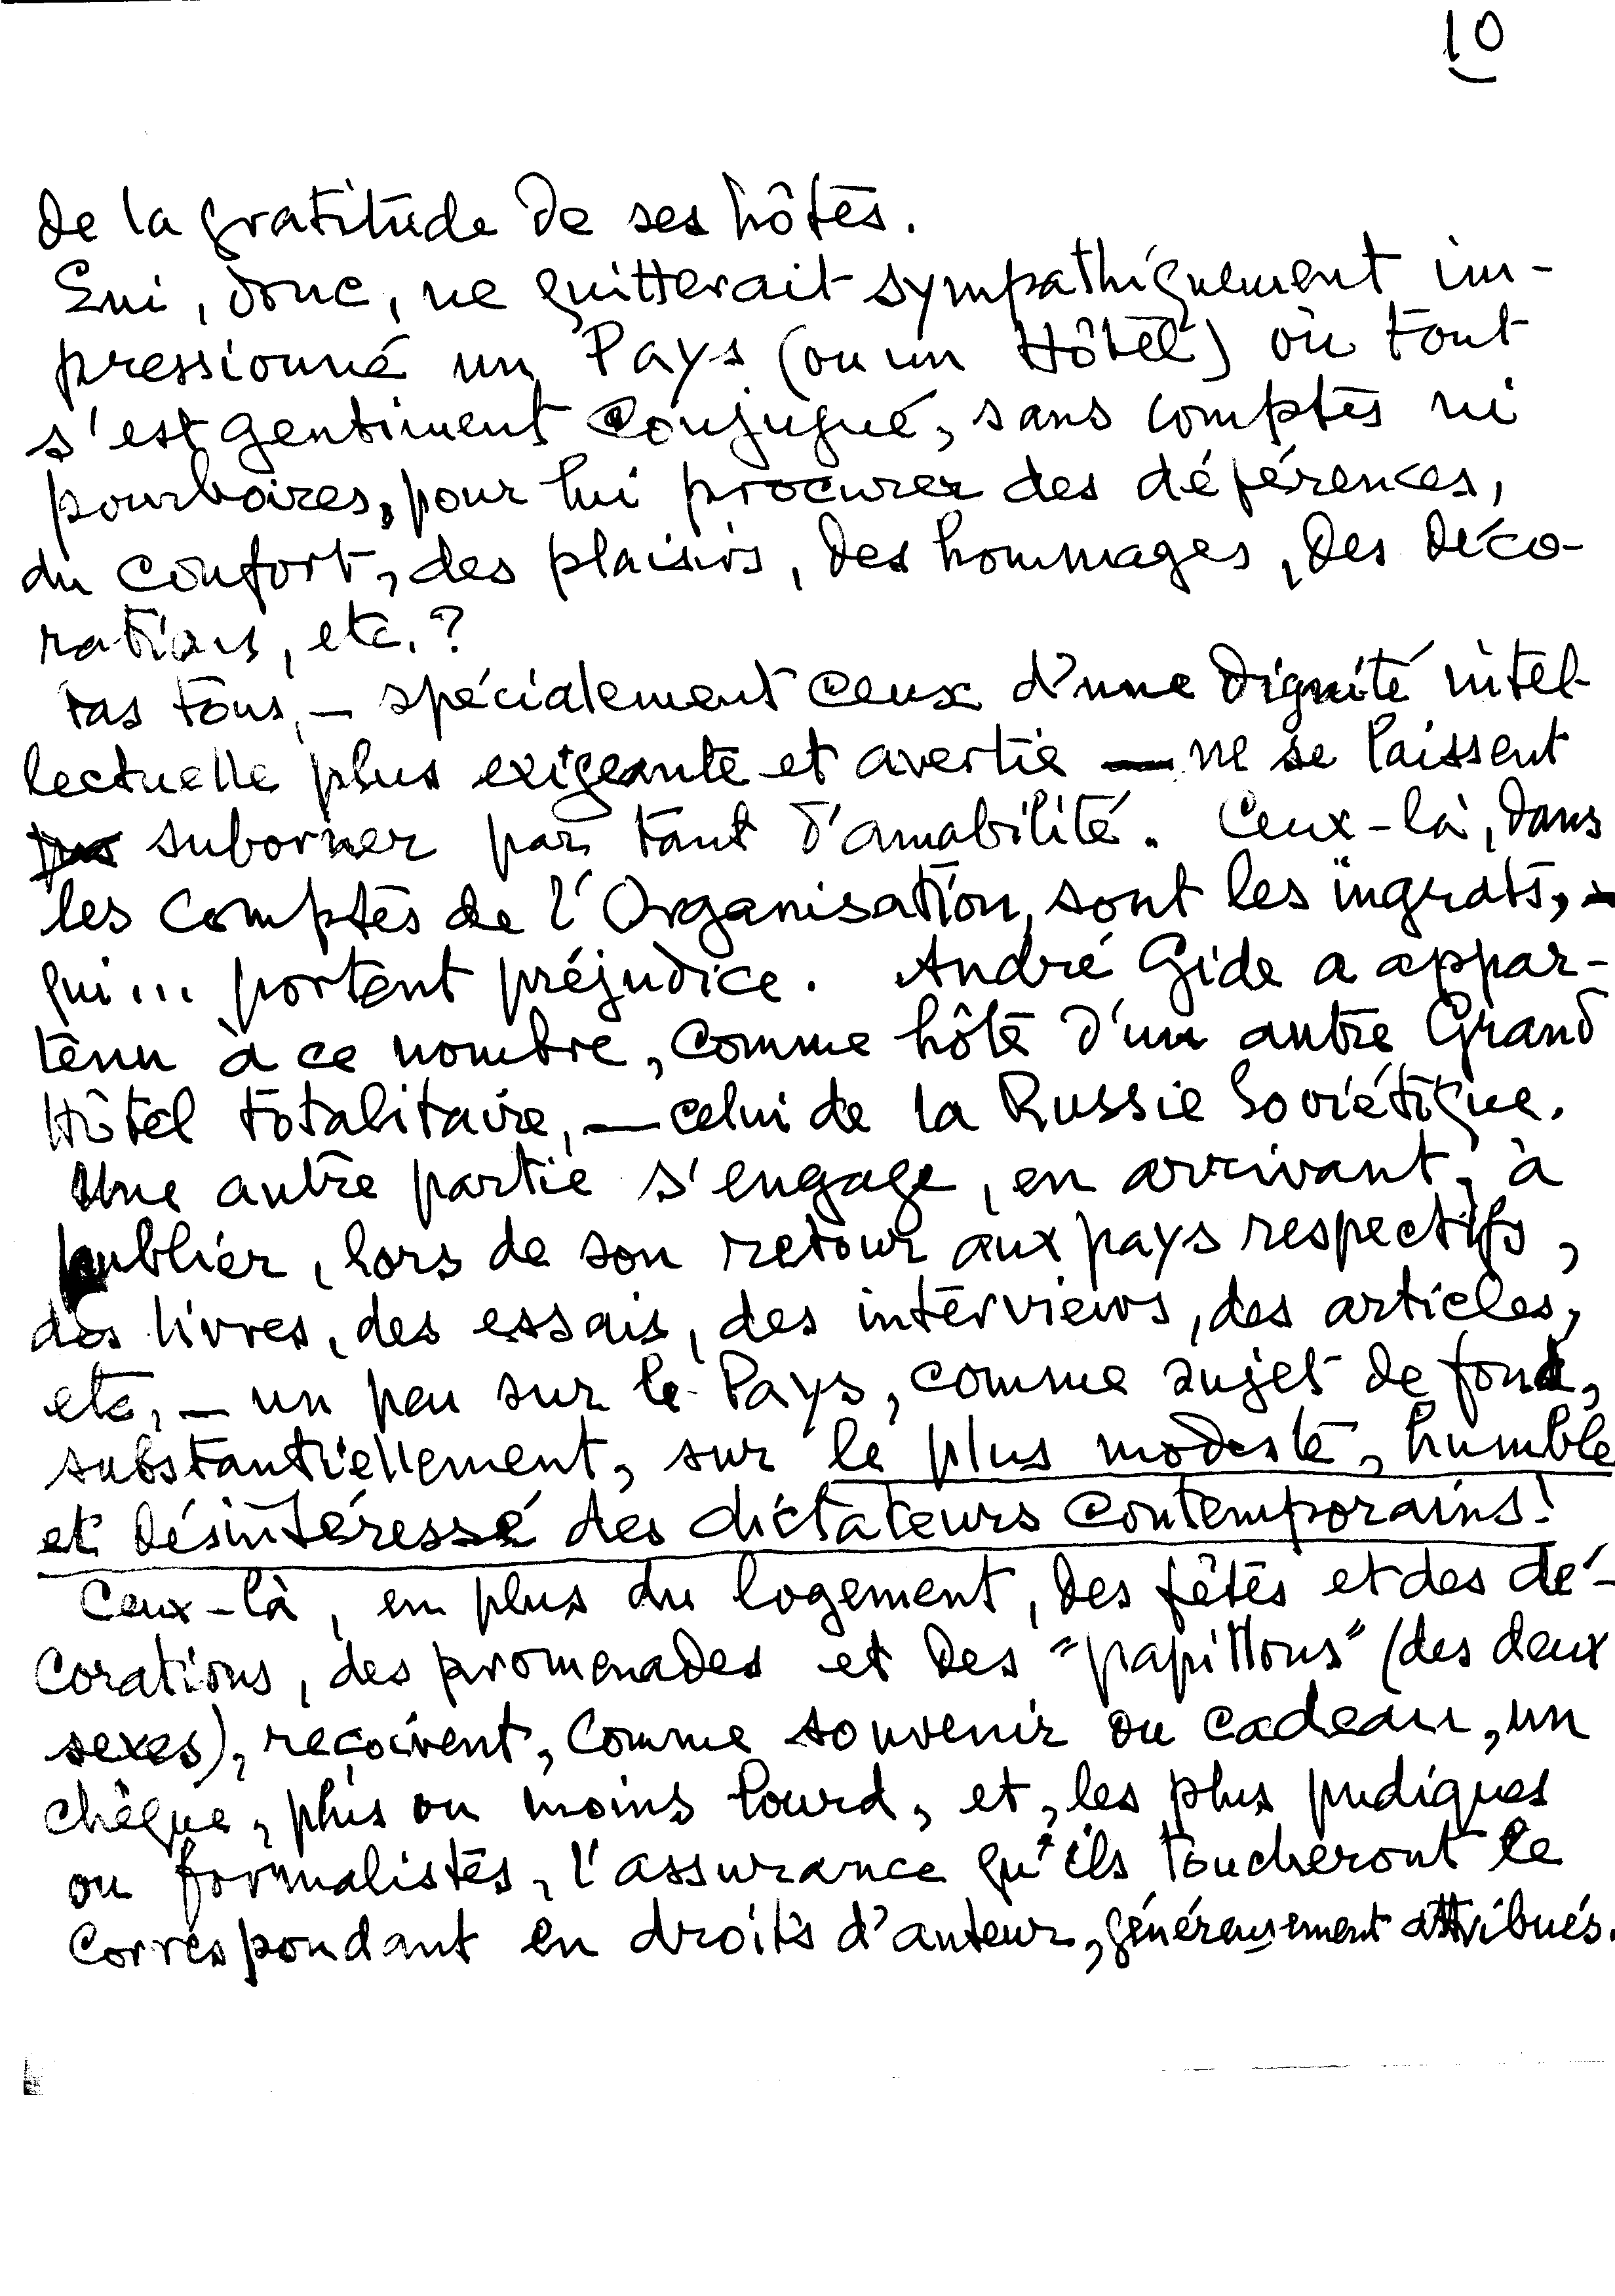 10
de la gratitude de ses hôtes.
Qui, donc, ne quitterait sympathiquement im-
pressionné un Pays (ou un Hôtel) où tout
s'est gentiment conjugué, sans comptes ni
pourboires, pour lui procurer des déférences,
du confort, des plaisirs, des hommages, des déco-
rations, etc.?
Pas tous, — spécialement ceux d'une dignité intel-
lectuelle plus exigeante et avertie — ne se laissent
suborner par tant d'amabilité. Ceux-là, dans
les comptes de l'Organisation, sont les ingrats, —
qui... portent préjudice. André Gide a appar-
tenu à ce nombre, comme hôte d'un autre Grand
Hôtel totalitaire, — celui de la Russie Soviétique.
Une autre partie s'engage, en arrivant, à
publier, lors de son retour aux pays respectifs,
des livres, des essais, des interviews, des articles,
etc, — un peu sur le Pays, comme sujet de fond,
substantiellement, sur le plus modeste, humble
et désintéressé des dictateurs contemporains!
Ceux-là, en plus du logement, des fêtes et des dé-
corations, des promenades et des "papillons" (des deux
sexes), reçoivent, comme souvenir ou cadeau, un
chèque, plus ou moins lourd, et, les plus pudiques
ou formalistes, l'assurance qu'ils toucheront le
correspondant en droits d'auteur, généreusement attribués.